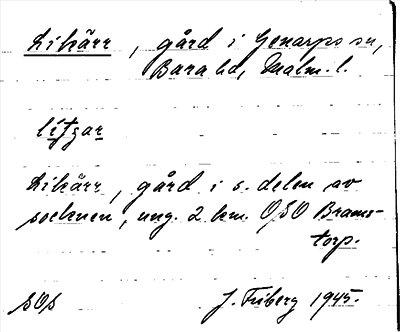 Likärr, gård i Genarps sn,
Bara hd, Malm. l.
Likärr, gård i s. delen av
socknen, ung. 2 km. OSO Brams-
torp.
SOS J. Friberg 1945.